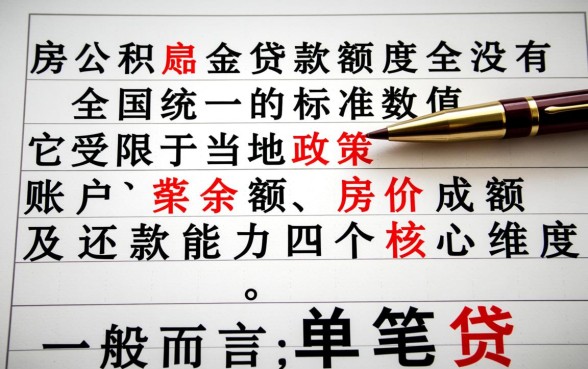 房公积金贷款额度全没有
全国统一的标准数值
它受限于当地政策
账户、余额、房价成额
及还款能力四个核心维度
。
一般而言;单笔贷